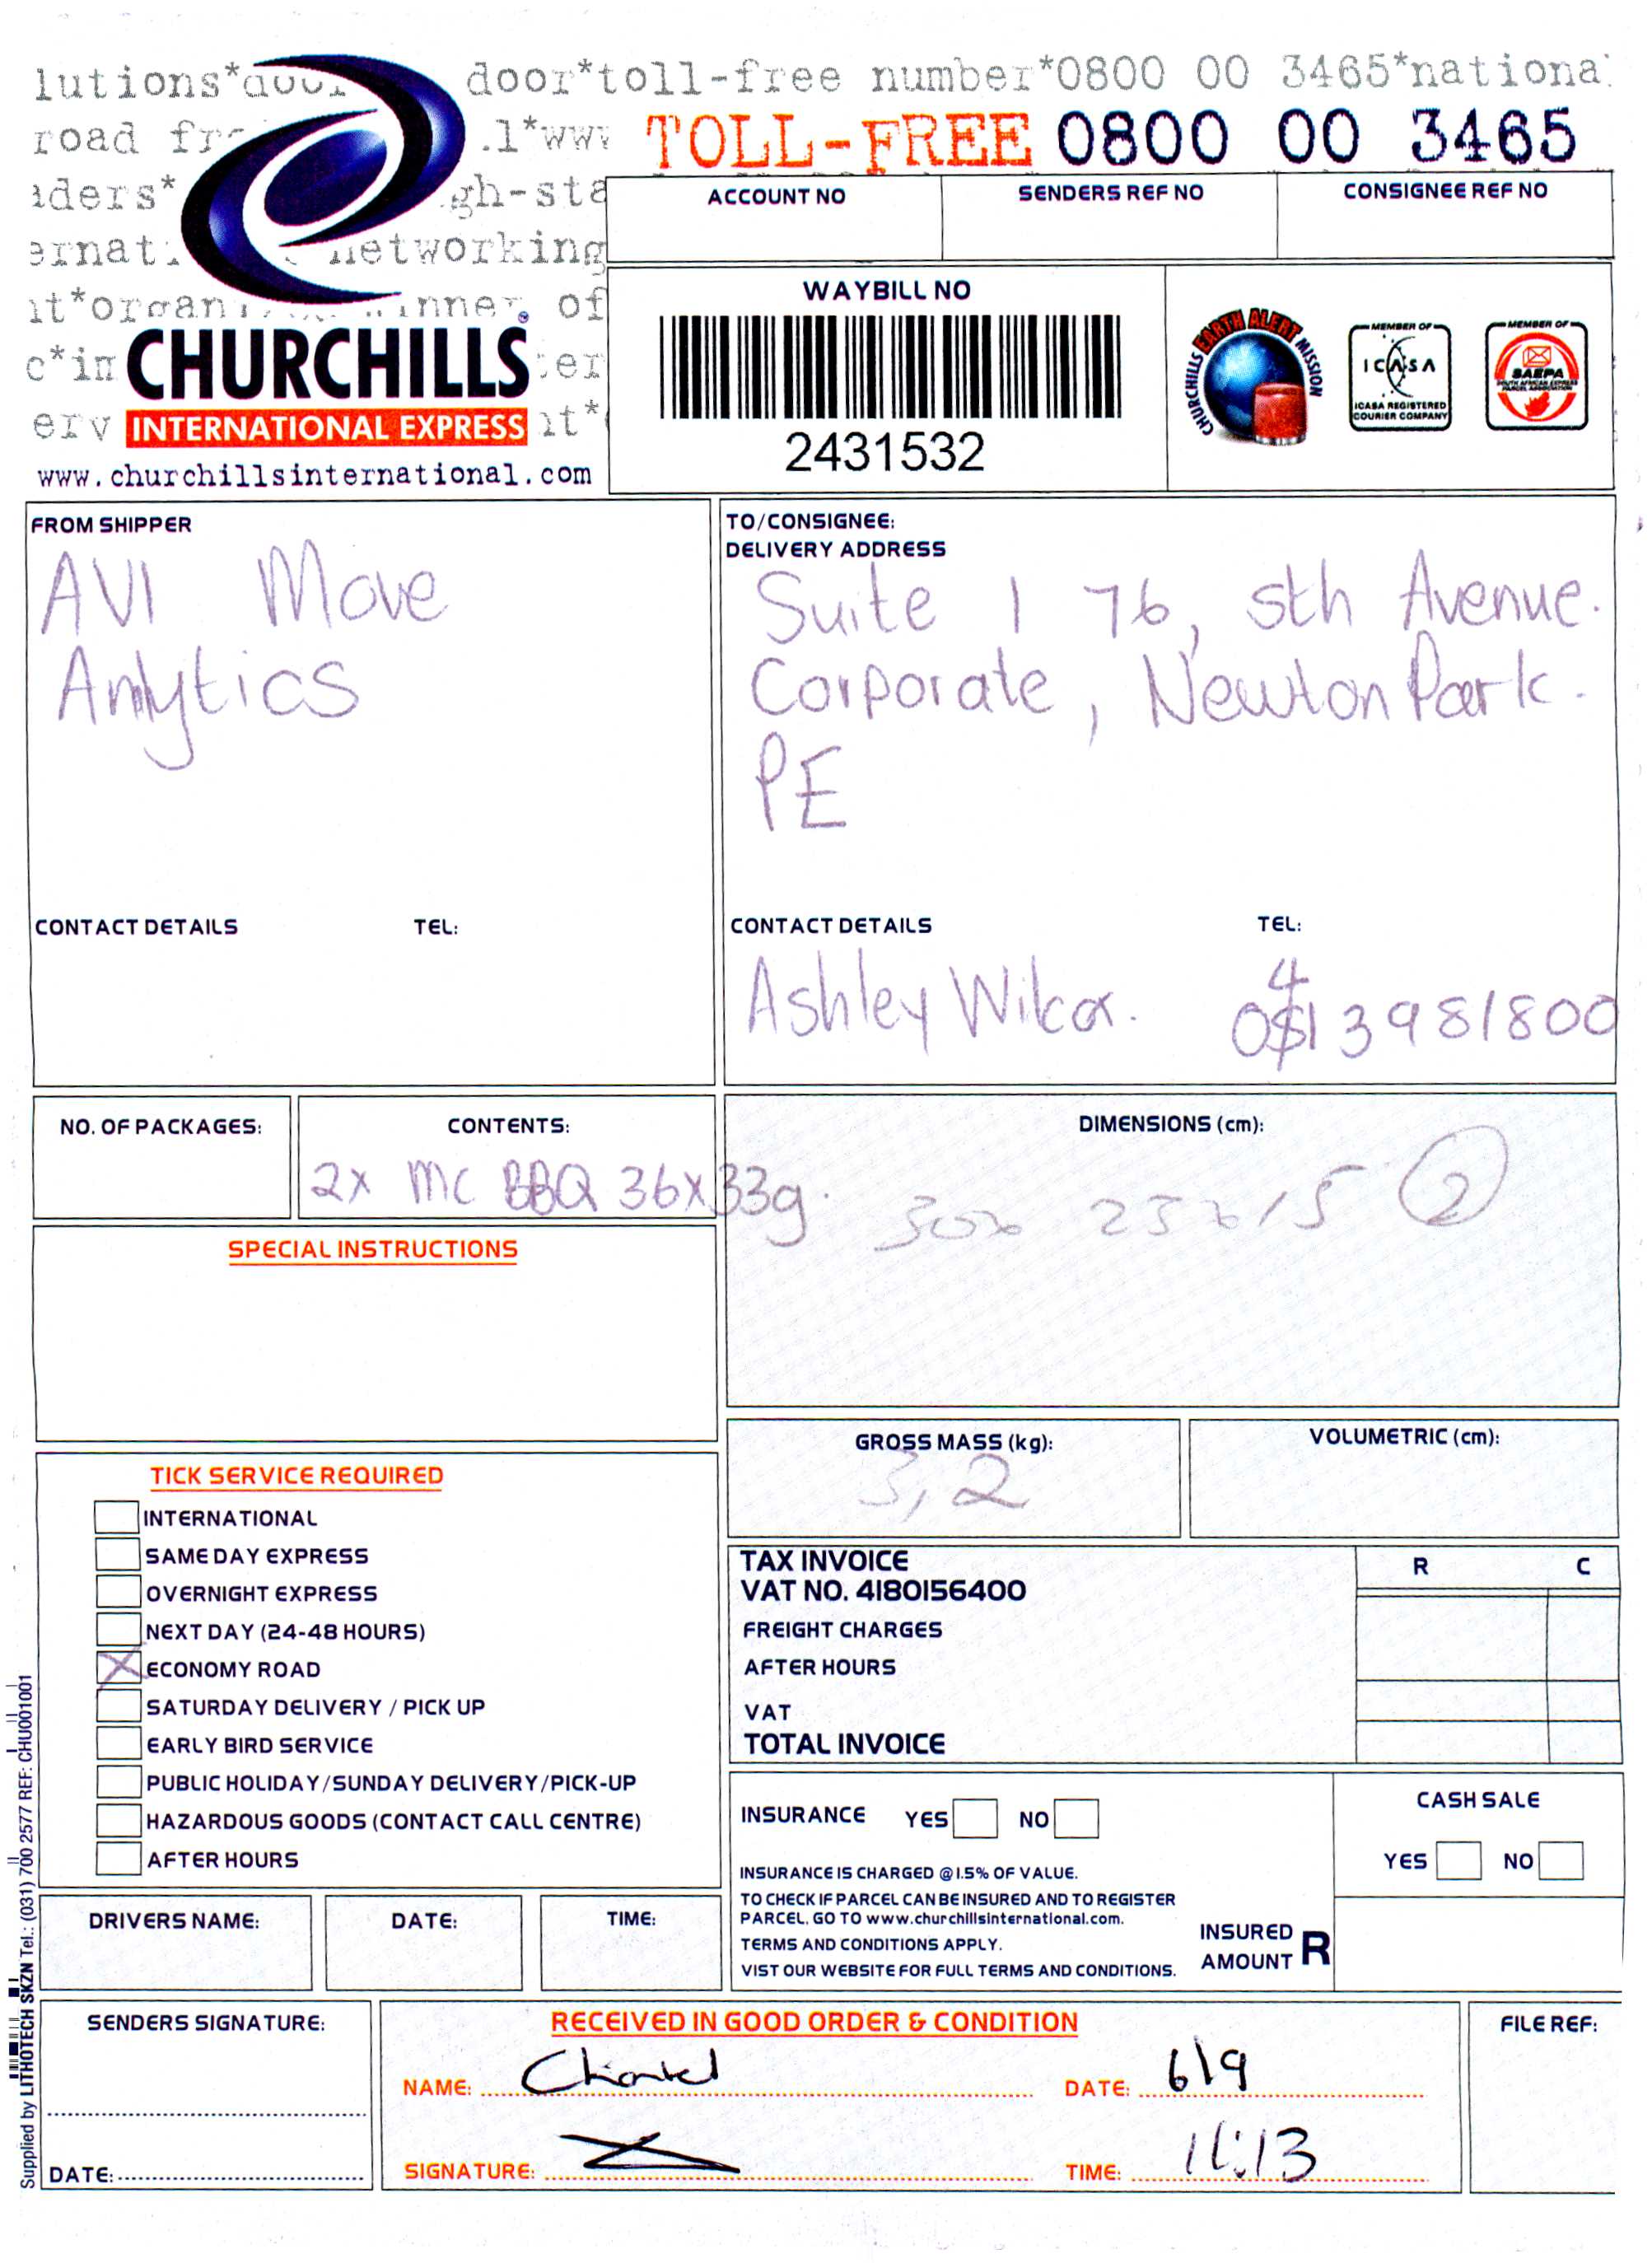 door*toll-free number*0800 00 3465*nationa
road
TOLL-FREE 0800 00 3465
ACCOUNT NO
SENDERS REF NO
CONSIGNEE REF NO
networking
of
WAYBILL NO
2431532
CHURCHILLS
INTERNATIONAL EXPRESS
www.churchillsinternational.com
CHURCHILLS EARTH ALERT MISSION
MEMBER OF
ICASA
ICASA REGISTERED
COURIER COMPANY
MEMBER OF
SAEPA
SOUTH AFRICAN EXPRESS
PARCEL ASSOCIATION
FROM SHIPPER
AVI Move
Anlytics
CONTACT DETAILS
TEL:
TO/CONSIGNEE:
DELIVERY ADDRESS
Suite 1 76, 5th Avenue.
Corporate, Newton Park.
PE
CONTACT DETAILS
TEL:
Ashley Wilcox.
0413981800
NO. OF PACKAGES:
CONTENTS:
2x MC BBQ 36x33g.
DIMENSIONS (cm):
30x 25x15 2
SPECIAL INSTRUCTIONS
GROSS MASS (kg):
3,2
VOLUMETRIC (cm):
TICK SERVICE REQUIRED
INTERNATIONAL
SAME DAY EXPRESS
OVERNIGHT EXPRESS
NEXT DAY (24-48 HOURS)
X ECONOMY ROAD
SATURDAY DELIVERY / PICK UP
EARLY BIRD SERVICE
PUBLIC HOLIDAY/SUNDAY DELIVERY/PICK-UP
HAZARDOUS GOODS (CONTACT CALL CENTRE)
AFTER HOURS
TAX INVOICE
VAT NO. 4180156400
R C
FREIGHT CHARGES
AFTER HOURS
VAT
TOTAL INVOICE
INSURANCE YES NO
INSURANCE IS CHARGED @ 1.5% OF VALUE.
TO CHECK IF PARCEL CAN BE INSURED AND TO REGISTER
PARCEL, GO TO www.churchillsinternational.com.
TERMS AND CONDITIONS APPLY.
VIST OUR WEBSITE FOR FULL TERMS AND CONDITIONS.
INSURED
AMOUNT R
CASH SALE
YES NO
DRIVERS NAME:
DATE:
TIME:
SENDERS SIGNATURE:
DATE:
RECEIVED IN GOOD ORDER & CONDITION
NAME: Chantel
DATE: 6/9
SIGNATURE:
TIME: 11:13
FILE REF:
Supplied by LITHOTECH SKZN Tel.: (031) 700 2577 REF: CHU001001